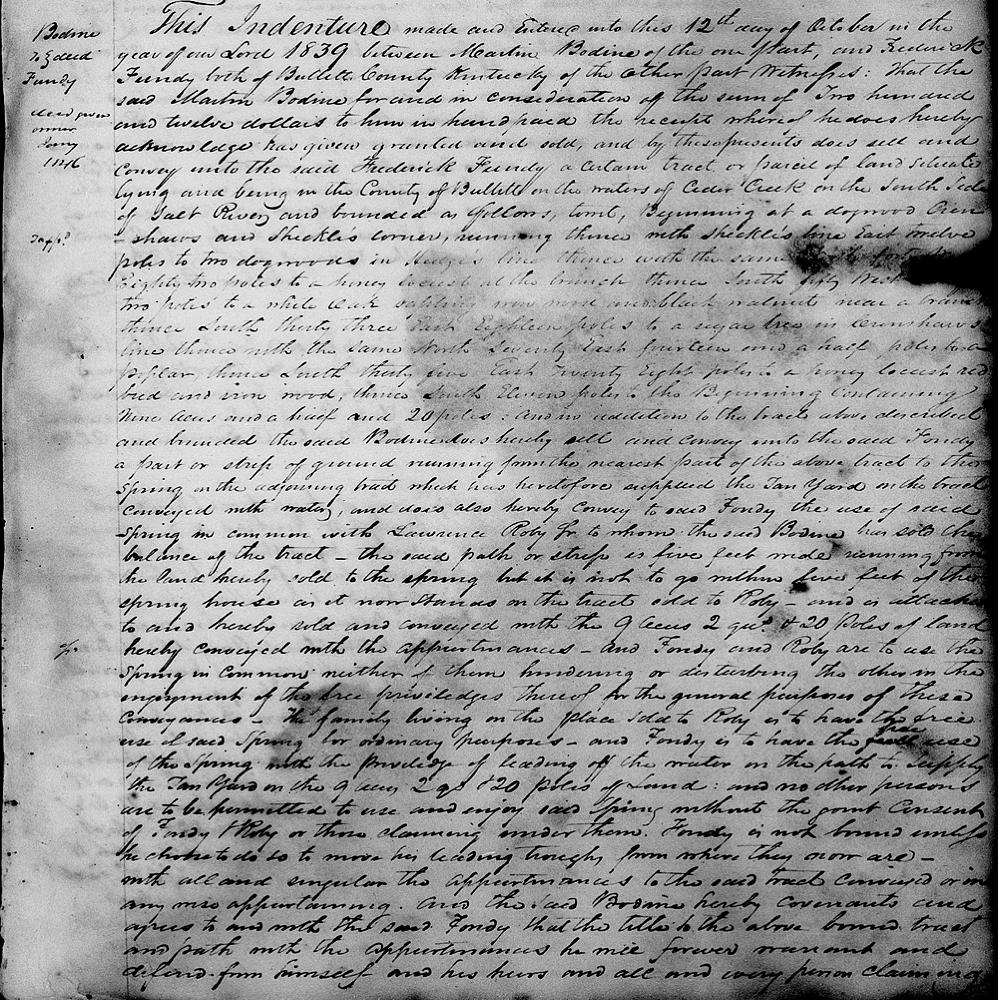 Bodine
To } deed
Fundy
deed given
owner
Jany
1846
This Indenture made and Entered into this 12th day of October in the
year of our Lord 1839 between Martin Bodine of the one part, and Frederick
Fundy both of Bullitt County Kentucky of the other part Witnesses: That the
said Martin Bodine for and in consideration of the sum of Two hundred
and twelve dollars to him in hand paid the receipt whereof he does hereby
acknowledge has given granted and sold, and by these presents does sell and
convey unto the said Frederick Fundy a certain tract or parcel of land situate
lying and being in the County of Bullitt on the waters of Ceder Creek on the South Side
of Salt River, and bounded as follows, towit, Beginning at a dogwood Cren
-shaws and Sheckle's corner, running thence with Sheckle's line East twelve
poles to two dogwoods in line thence with the same
Eighty two poles to a honey locust at the branch thence South fifty West
two poles to a white oak sapling iron wood and black walnut near a branch
thence South thirty three East Eighteen poles to a sugar tree in Crenshaws
line thence with the same North Seventy East fourteen and a half poles to a
poplar, thence South thirty five East Twenty Eight poles to a honey locust red
bud and iron wood, thence South Eleven poles to the Beginning Containing
Nine acres and a half and 20 poles: And in addition to the tract above described
and bounded the said Bodine does hereby sell and convey unto the said Fondy
a part or strip of ground running from the nearest part of the above tract to the
Spring on the adjoining tract which has heretofore supplied the Tan Yard on the tract
conveyed with water, and does also hereby Convey to said Fondy the use of said
Spring in common with Lawrence Roby Sr to whom the said Bodine has sold the
balance of the tract – the said path or strip is five feet wide running from
the land hereby sold to the spring but it is not to go within five feet of the
spring house as it now Stands on the tract sold to Roby – and is attached
to and hereby sold and conveyed with the 9 acres 2 qrs. & 20 Poles of land
hereby conveyed with the appurtenances – and Fondy and Roby are to use the
Spring in Common neither of them hindering or disturbing the other in the
enjoyment of the free priviledges thereof for the general purposes of these
conveyances – The family living on the place sold to Roby is to have the free
use of said Spring for ordinary purposes – and Fondy is to have the free use
of the Spring with the priviledge of leading off the water on the path to Supply
the Tan Yard on the 9 acres 2 qs & 20 poles of Land: and no other persons
are to be permitted to use and enjoy said Spring without the joint Consent
of Fondy & Roby or those claiming under them. Fondy is not bound unless
he choose to do so to move his leading troughs from where they now are –
with all and singular the appurtenances to the said tract conveyed or in
any wise appertaining. And the said Bodine hereby covenants and
agrees to and with the said Fondy that the title to the above bound tract
and path with the appurtenances he will forever warrant and
defend from himself and his heirs and all and every person claiming